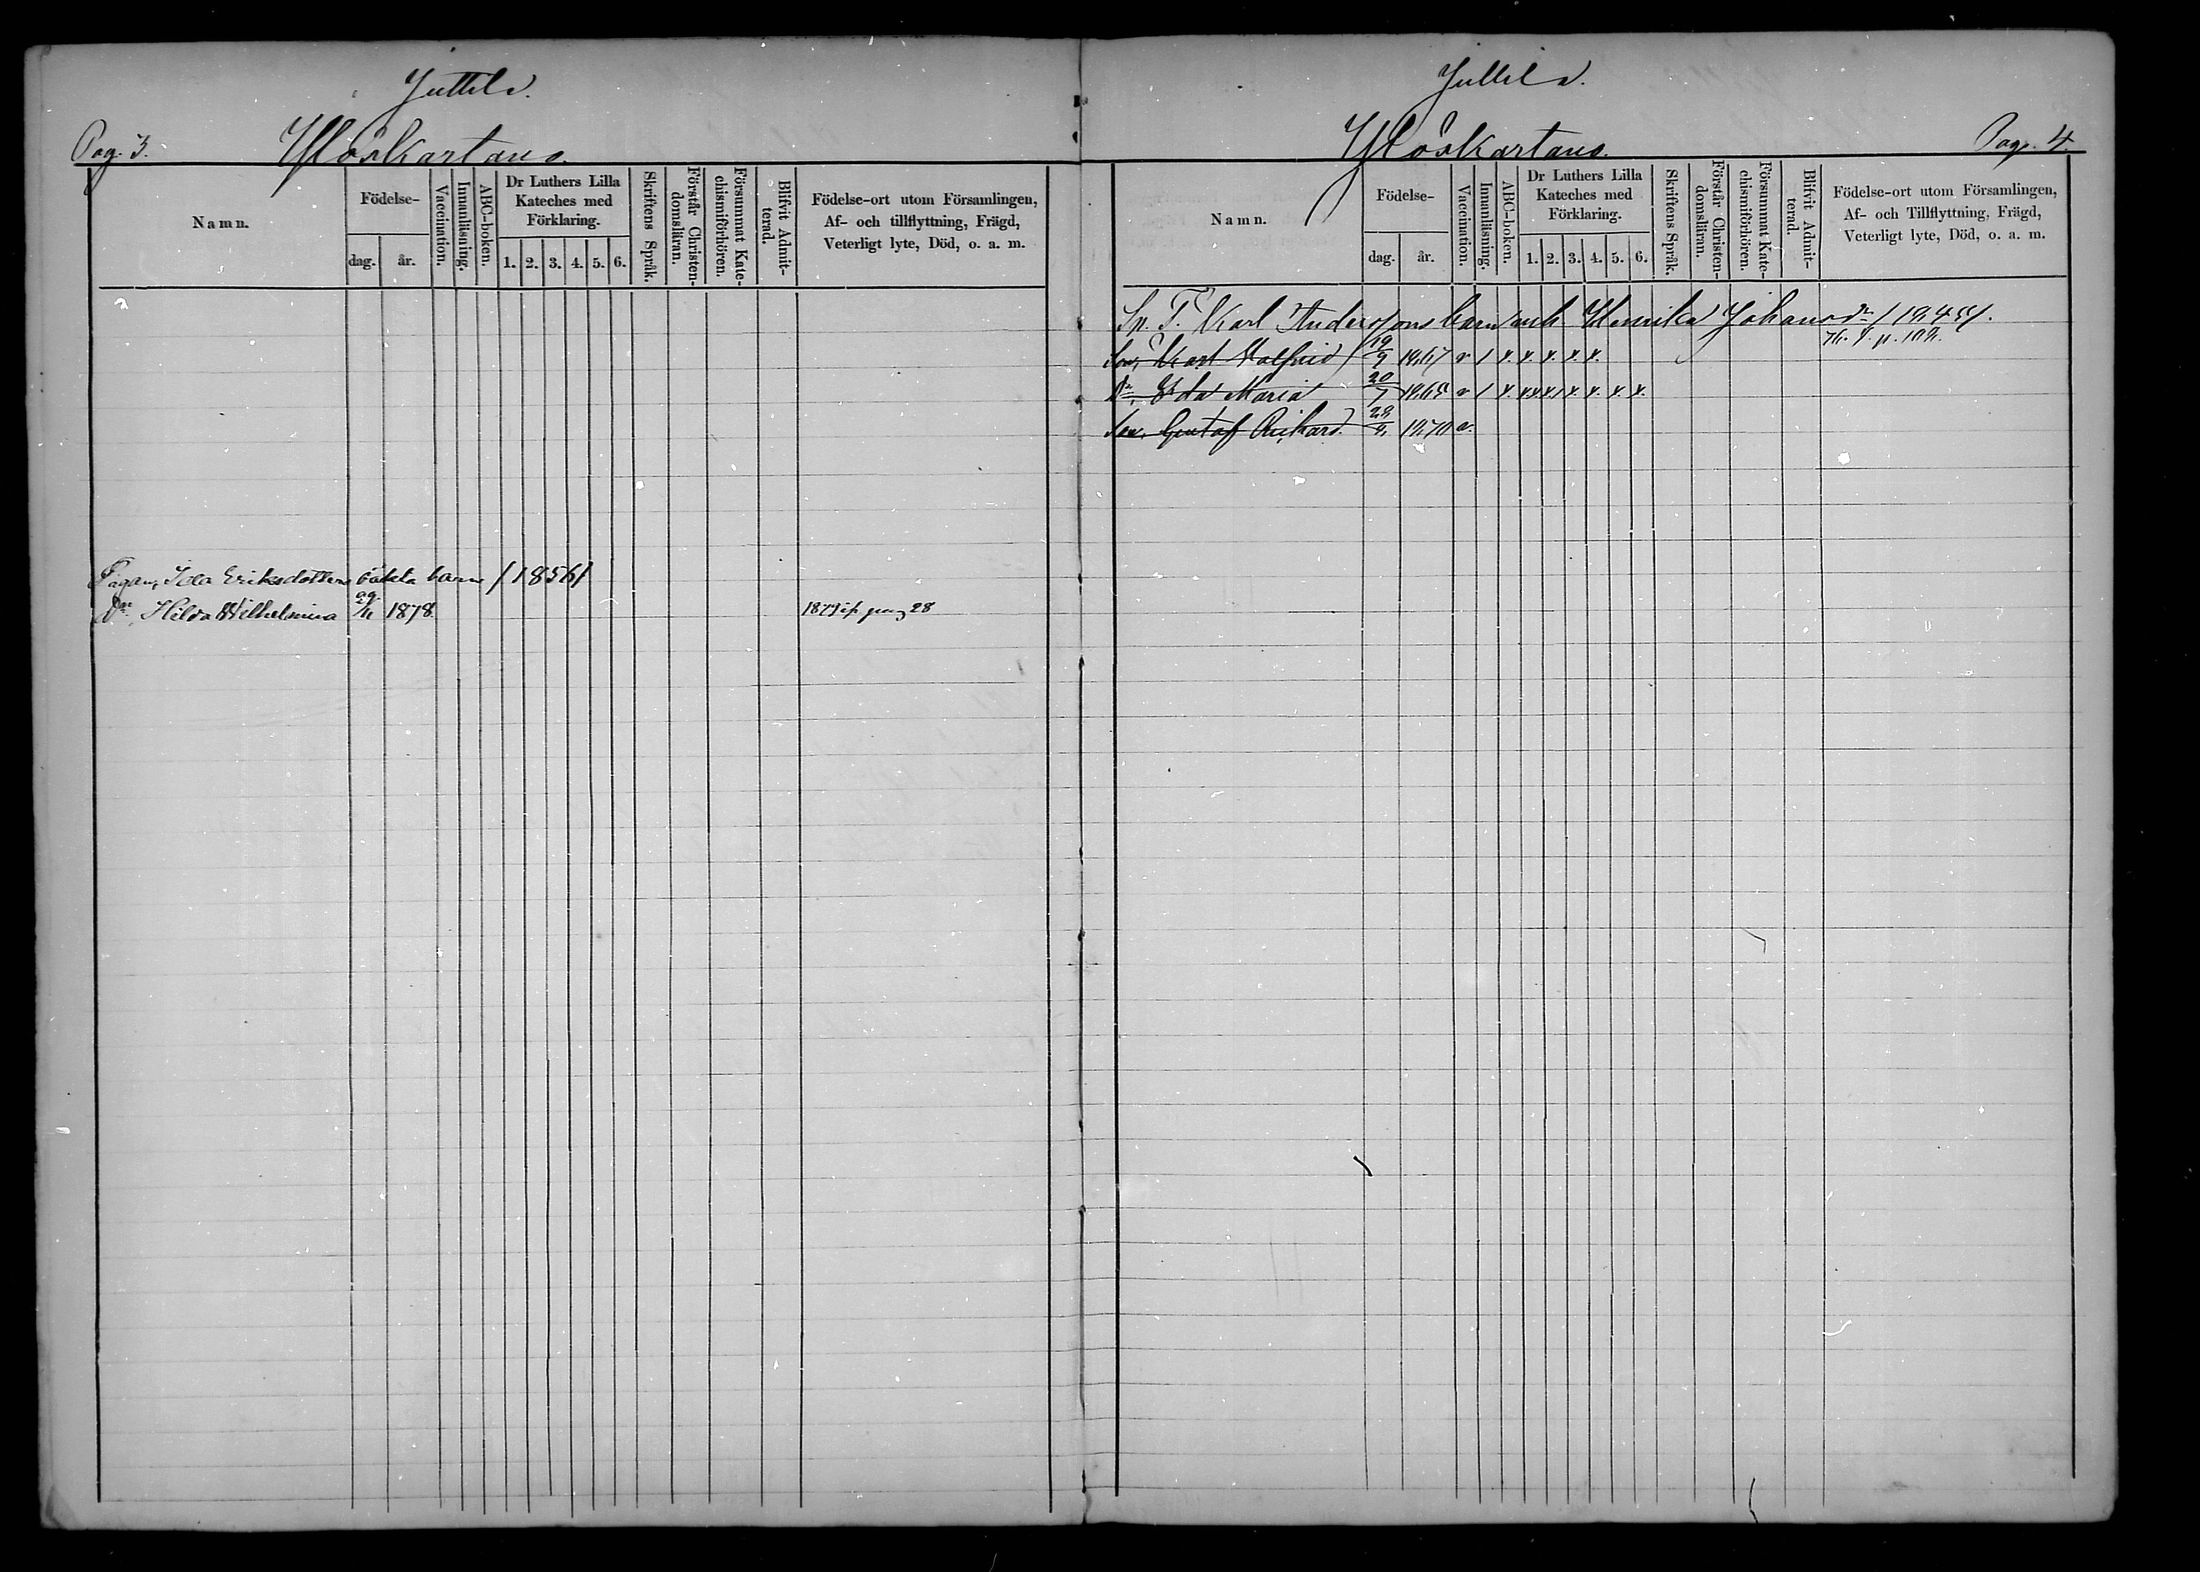 Juttila.
Pag. 3. Yloskartano.
Namn.
Födelse-
dag.
år.
Vaccination.
Innanläsning.
ABC-boken.
Dr Luthers Lilla
Kateches med
Förklaring.
1. 2. 3. 4. 5. 6.
Skriftens Språk.
Förstår Christen-
domsläran.
Försummat Kate-
chismiförhören.
Blifvit Admit-
terad.
Födelse-ort utom Församlingen,
Af- och tillflyttning, Frägd,
Veterligt lyte, Död, o. a. m.
Pigan, Ida Eriksdotters oäkta barn /1856/
Dr. Hilda Wilhelmina 29/11 1878. 1879 ip pag 28
Juttila.
Yloskartano. Pag. 4.
Namn.
Födelse-
dag.
år.
Vaccination.
Innanläsning.
ABC-boken.
Dr Luthers Lilla
Kateches med
Förklaring.
1. 2. 3. 4. 5. 6.
Skriftens Språk.
Förstår Christen-
domsläran.
Försummat Kate-
chismiförhören.
Blifvit Admit-
terad.
Födelse-ort utom Församlingen,
Af- och Tillflyttning, Frägd,
Veterligt lyte, Död, o. a. m.
Sp. T. Karl Anderssons barn Johansdr
Son, Karl Valfrid 19/9 1867 v / x. x. x. x. x.
Dr. Eda Maria 20/1 1865 v /
Son, Gustaf Rickard 1870 v.